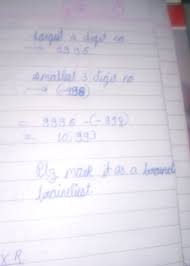 largest 4 digit no
→ 9995
smallest 3 digit no
→ (-998)
= 9995 -(-998)
= 10,993
Plz mark it as a brainl
brainliest
X R